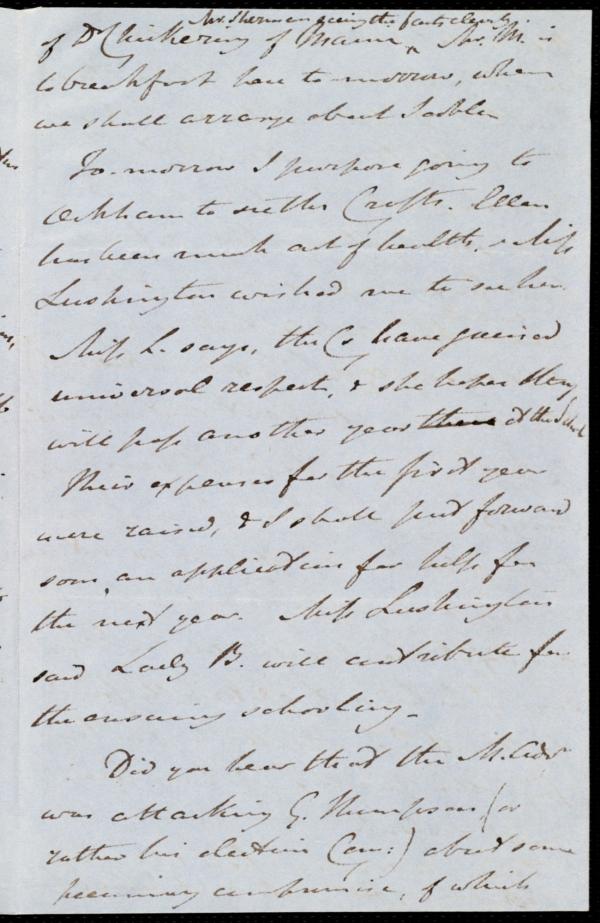 Mr. Sherman giving the facts clearly.
of Dr Chickering of Maine, Mr. M. is
to breakfast here to-morrow, when
we shall arrange about
To-morrow I purpose going to
Ockham to see the Crafts. Ellen
has been much out of health, & Miss
Lushington wished me to see her.
Miss L. says, the Cs have gained
universal respect, & she hopes they
will pass another year there at the School
Their expenses for the first year
were raised, & I shall put forward
soon, an application for help for
the next year. Miss Lushington
said Lady B. will contribute for
the ensuing schooling.
Did you hear that the M. Advr
was attacking G. Thompson (or
rather his election Com:) about some
pecuniary compromise, of which